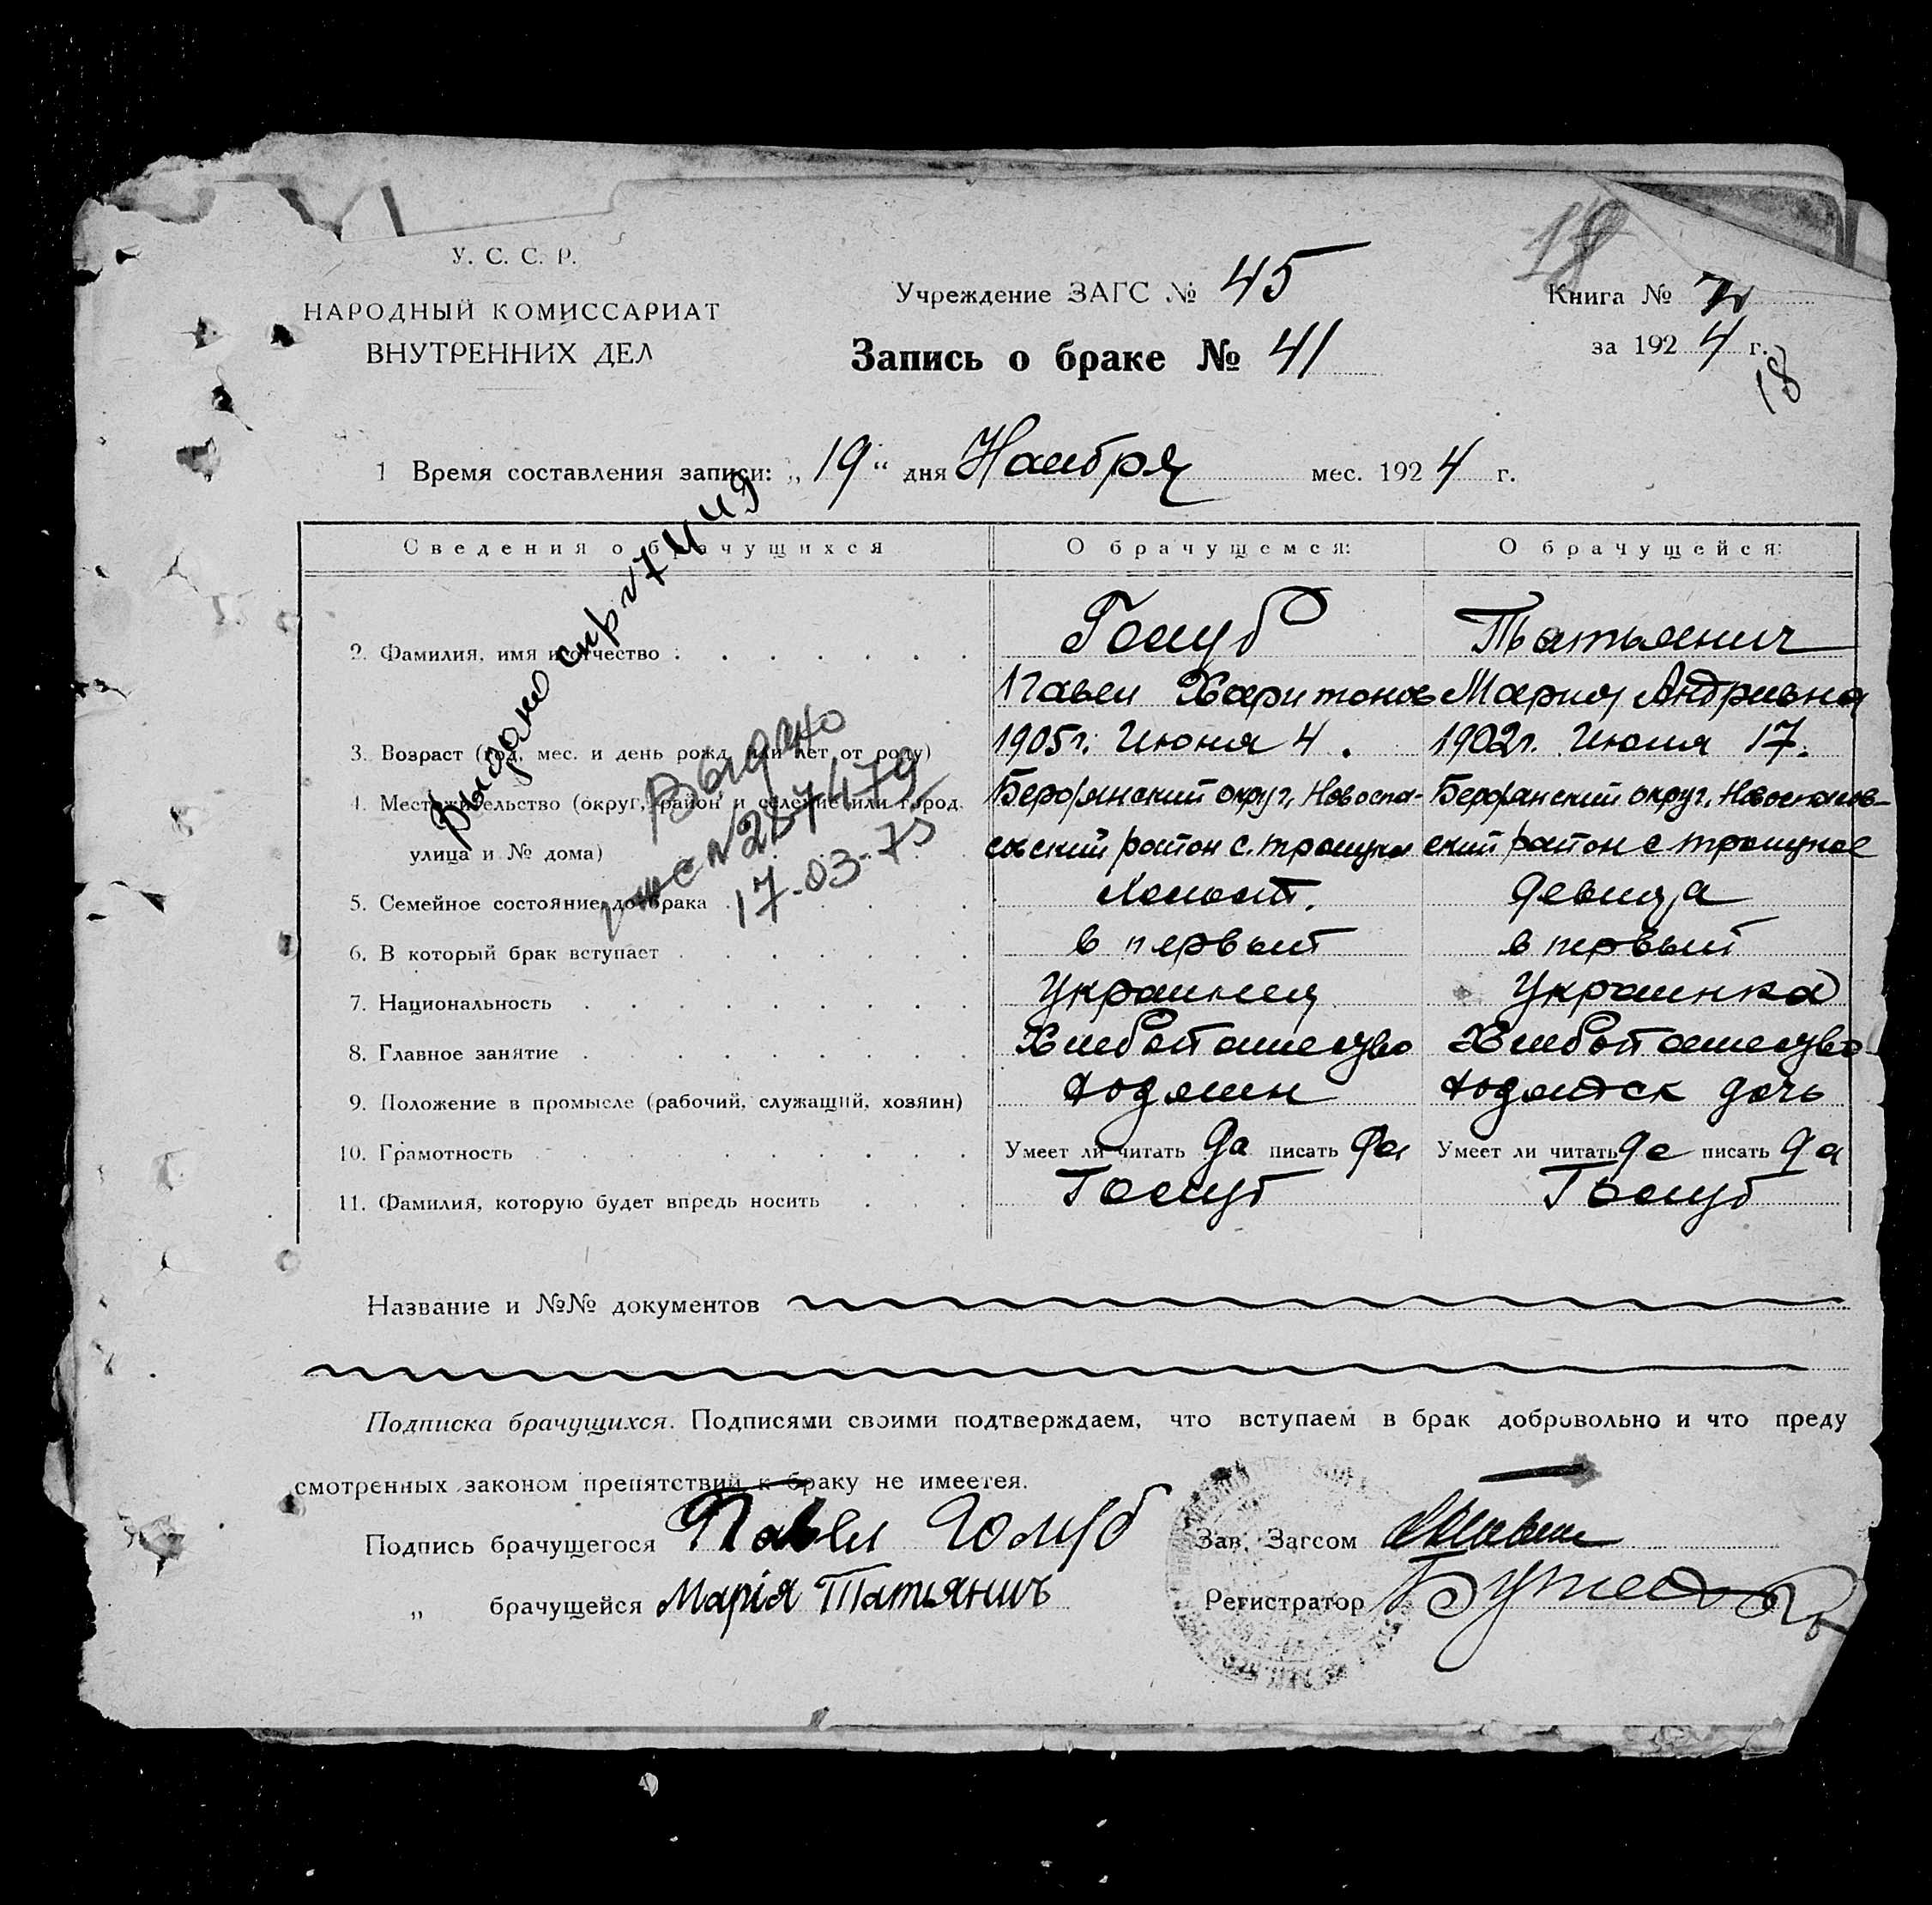 18
У. С. С. Р.
НАРОДНЫЙ КОМИССАРИАТ
ВНУТРЕННИХ ДЕЛ
Учреждение ЗАГС № 45
Запись о браке № 41
Книга №
за 1924 г.
18
1 Время составления записи: „19“ дня Ноября мес. 1924 г.
Сведения о брачущихся О брачущемся: О брачущейся:
2. Фамилия, имя и отчество Голуб Татьянич
Павел Харитонов Мария Андривна
3. Возраст (год, мес. и день рожд. или лет от роду) 1905 г. Июня 4. 1902 г. Июля 17.
4. Местожительство (округ, район и селение или город, Бердянский округ, Новоспа- Бердянский округ, Новоспасов-
улица и № дома) совский район с. ский район с
5. Семейное состояние до брака Холост. девица
6. В который брак вступает в первый в первый
7. Национальность Украинец Украинка
8. Главное занятие Хлебопашество Хлебопашество
9. Положение в промысле (рабочий, служащий, хозяин) дочь
10. Грамотность Умеет ли читать да писать да Умеет ли читать да писать да
11. Фамилия, которую будет впредь носить Голуб Голуб
Выдано
Выдано
№ 287479
17-03-75
Название и №№ документов
Подписка брачущихся. Подписями своими подтверждаем, что вступаем в брак добровольно и что преду
смотренных законом препятствий к браку не имеется.
Подпись брачущегося Павел Голуб Зав. Загсом
„ брачущейся Марія Татьянич Регистратор